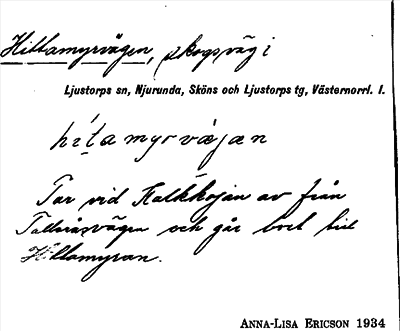 Hittamyrvägen, skogsväg i
Ljustorps sn, Njurunda, Sköns och Ljustorps tg, Västernorrl. l.
hítamyrvàjan
Tar vid Kalkkojan av från
vägen och går bort till
Hittamyran.
ANNA-LISA ERICSON 1934